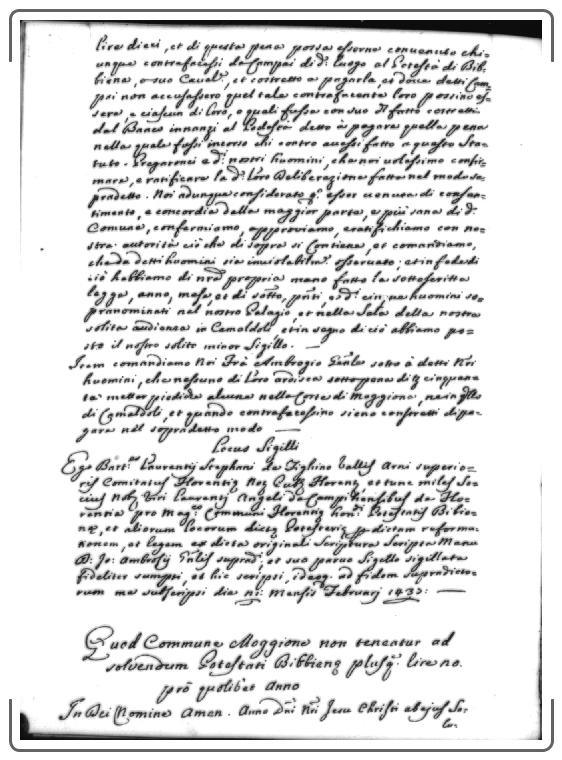 lire dieci, et di questa pena possa esserne convenuto chi=
unque contrafacessi da Campai di d.º luogo al Potestà di Bib=
biena, o suo Caval.e, et costretto a pagarla, et dove detti Cam=
psi non accusassero quel tale contrafacente loro possino es=
sere, e ciascun di loro, o quali fusse con suo
dal Banco innanzi al detto à pagare quella pena
nella quale fussi incorso chi contro avessi fatto a questo Sta=
tuto. Pregaronci e d.i nostri huomini, che noi volessimo confir=
mare, e ratificare la d.a loro Deliberazione fatta nel modo so=
pradetto. Noi adunque considerato esser venuta di consen=
timento, e concordia della maggior parte, e più sana di d.º
Comune, confermiamo, approviamo, e ratifichiamo con no=
stra autorità ciò che di sopra si Contiene, et comandiamo,
che da detti huomini sia inviolabilm.e osservato; et in fede di
ciò habbiamo di nrã propria mano fatto la sottoscritta
legge, anno, mese, et di sotto, pñti e d.i huomini so=
pranominati nel nostro Palagio, et nella Sala della nostra
solita audienza in Camoldoli et in segno di ciò abbiamo po=
sto il nostro solito minor Sigillo. —
Item comandiamo Noi Frà Ambrogio Gẽnle sotto à detti Nr̃i
huomini, che nessuno di loro ardisca sotto pena di cinquan=
ta metter piedi alcuna nella Corte di Moggiona, ne
di Camaldoli, et quando contrafacessino sieno constretti di pa=
gare nel sopradetto modo —
Locus Sigilli
Ego Bart.us Laurentij Stephani de Fighino Vallis Arni superio=
ris Comitatus Florentię Not. Pub.s Florent. et tunc miles So=
cius Nob. Viri Laurentij Angeli de Campi
rentia pro Mag.co Communi Florentię hon. Potestatis Bibie=
nę, et aliorum locorum dictę Potesterię pdictam reforma=
tionem, et legem ex dicta originali Scriptura Scripta Manu
D: Jo: Ambrosij Gñlis suprad.i, et suo parvo Sigillo sigillata
fideliter sumpsi, et hic scripsi, ideoq. ad fidem supradicto=
rum me subscripsi die Mensis Februarij 1433: —
Quod Commune Moggione non teneatur ad
solvendum Potestati Bibbienę plusq. lire no.
prõ quolibet anno
In Dei Nomine Amen. Anno Dñi Nr̃i Jesu Christi ab ejus Sa=
lu-